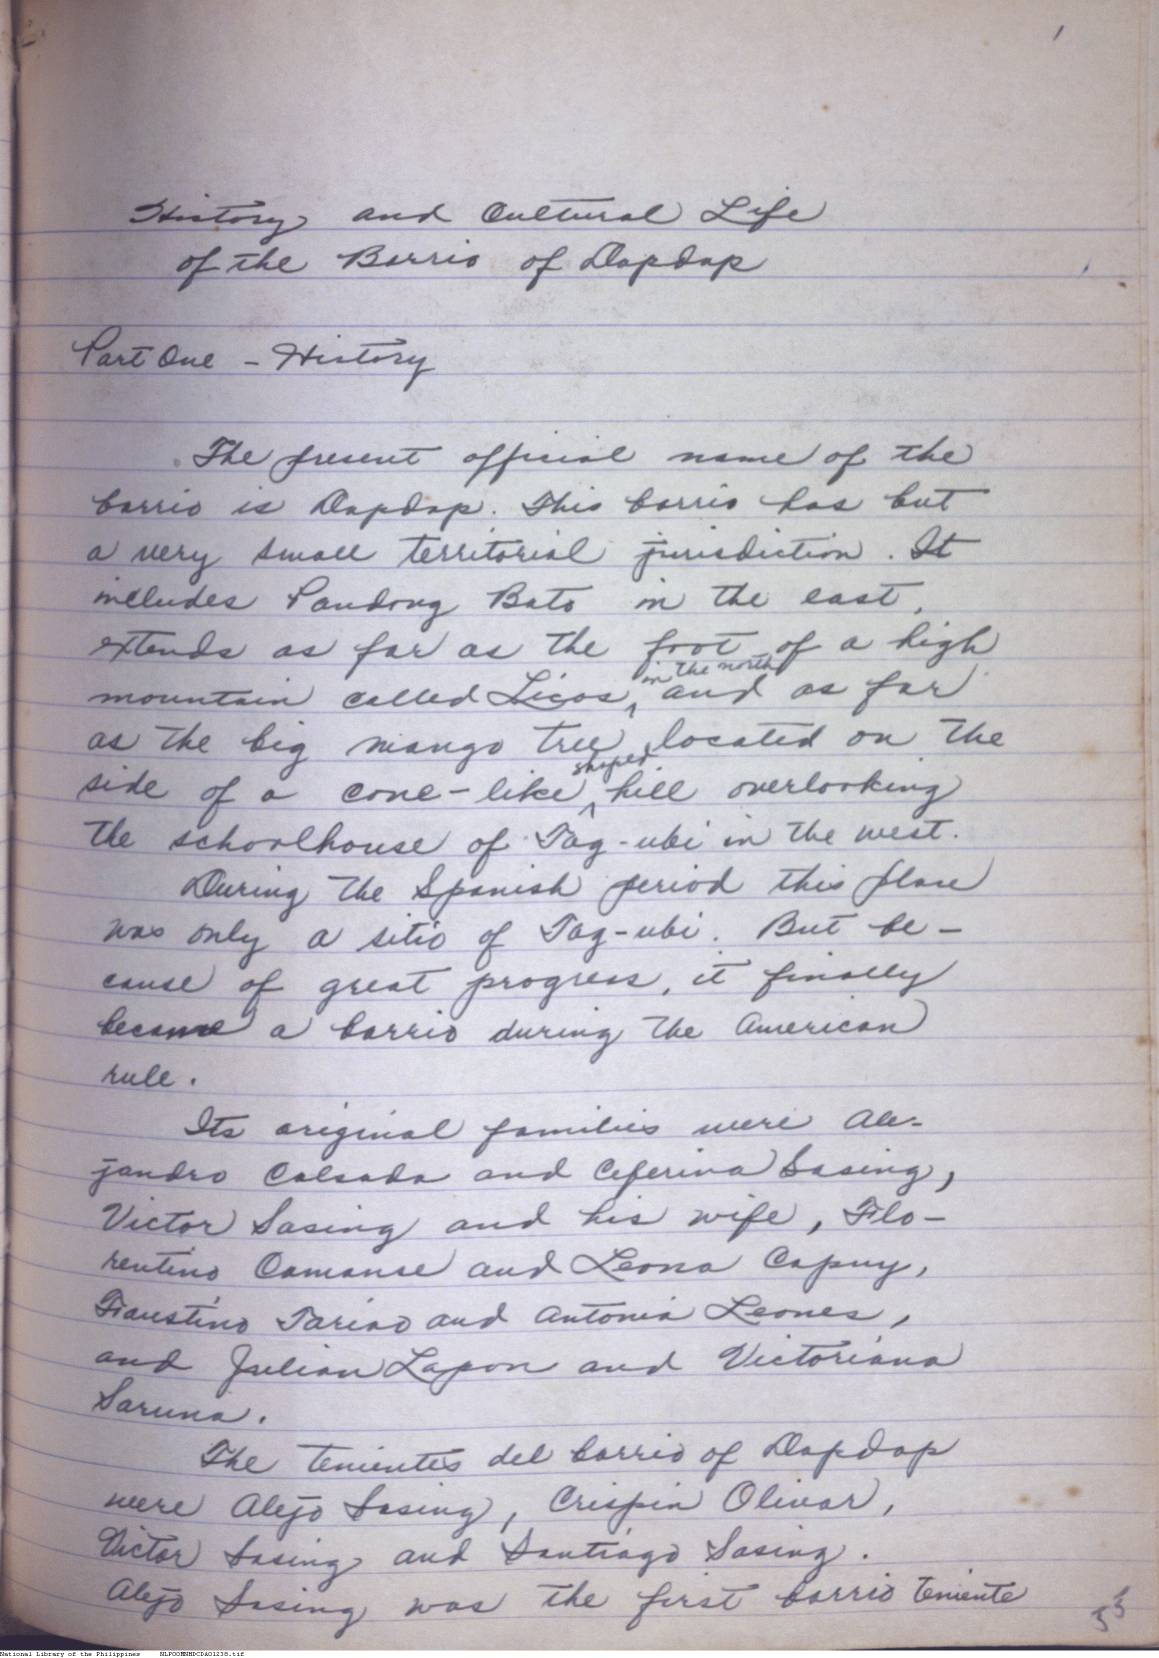 1
History and Cultural Life
of the Barrio of Dapdap
Part One - History
The present official name of the
barrio is Dapdap. This barrio has but
a very small territorial jurisdiction. It
includes Pandong Bato in the east,
extends as far as the foot of a high
mountain called Licos, in the north and as far
as the big mango tree located on the
side of a cone-like shaped hill overlooking
the schoolhouse of Tag-ubi in the west.
During the Spanish period this place
was only a sitio of Tag-ubi. But be-
cause of great progress, it finally
became a barrio during the American
rule.
Its original families were Ale-
jandro Calsada and Ceferina Sasing,
Victor Sasing and his wife, Flo-
rentino Camanse and Leona Capuy,
Faustino Tarino and Antonia Leones,
and Julian Lapon and Victoriana
Saruna.
The tenientes del barrio of Dapdap
were Alejo Sasing, Crispin Olivar,
Victor Sasing and Santiago Sasing.
Alejo Sasing was the first barrio teniente
53
National Library of the Philippines NLPOOMNHDCDA01238.tif